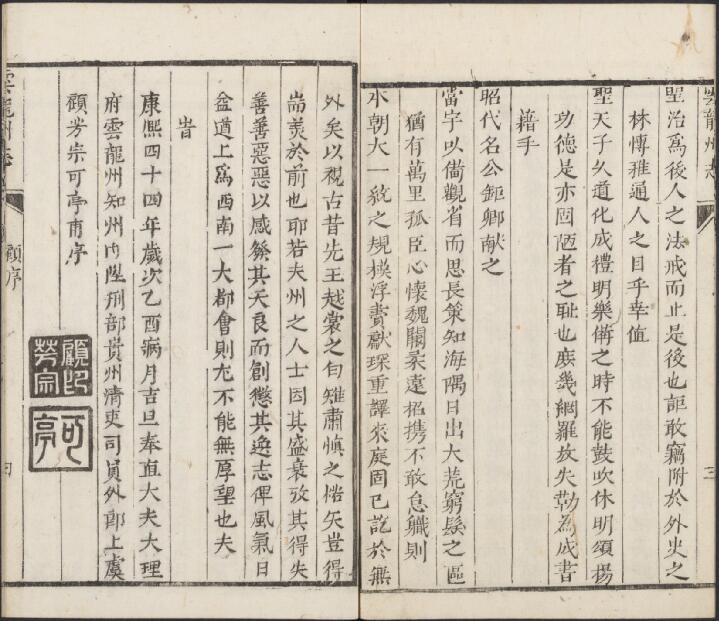 雲龍州志
三
聖治爲後人之法戒而止是後也詎敢竊附於外史之
林傳雅通人之目乎幸值
聖天子久道化成禮明樂備之時不能鼓吹休明頌揚
功德是亦固陋者之耻也庶幾網羅放失勒為成書
藉手
昭代名公鉅卿献之
當宁以僃觀省而思長策知海隅日出大荒窮髮之區
猶有萬里孤臣心懷魏闕柔遠招携不敢怠職則
本朝大一統之規模浮賮獻琛重譯來庭固已訖於無
外矣以視古昔先王越裳之白雉肅慎之楛矢豈得
耑羙於前也耶若夫州之人士因其盛衰攷其得失
善善惡惡以感發其天良而創懲其逸志俾風氣日
盆道上爲西南一大都會則尤不能無厚望也夫
旹
康熙四十四年歲次乙酉病月吉旦奉直大夫大理
府雲龍州知州內陞刑部貴州清吏司員外郎上虞
顧芳宗可亭甫序
顧芳宗印
可亭
雲龍州志
顧序
四